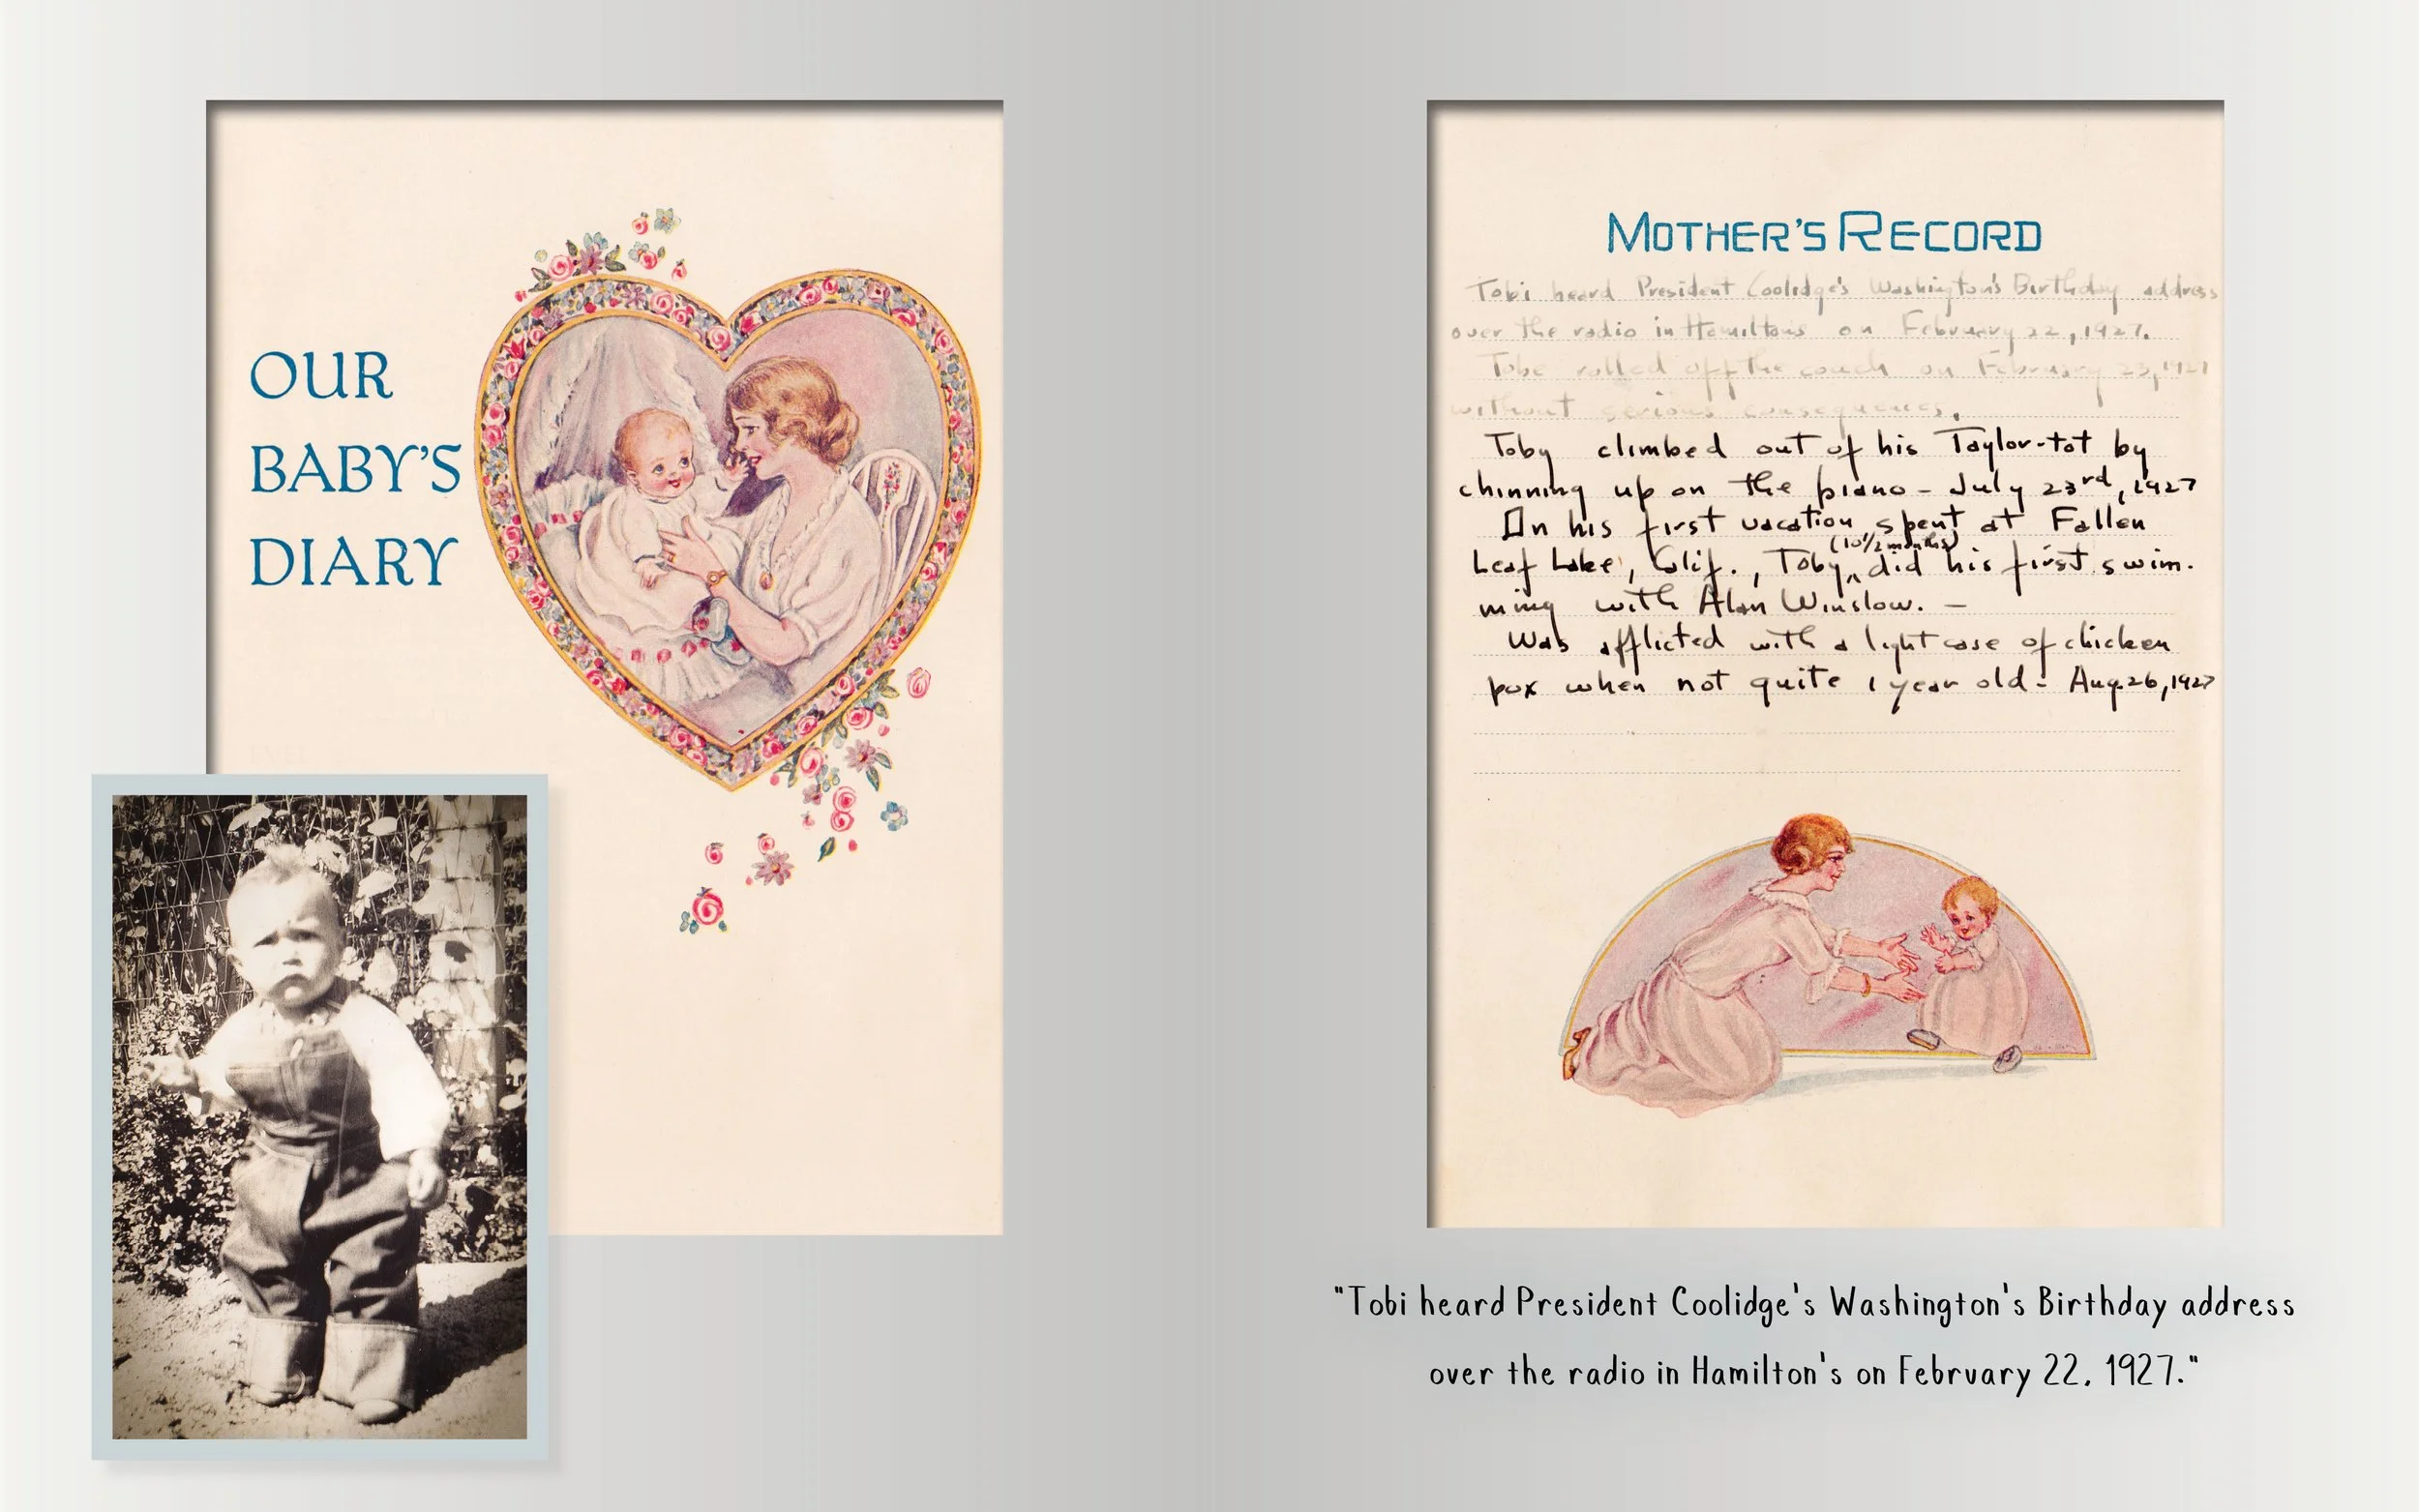 OUR
BABY'S
DIARY
MOTHER'S RECORD
Tobi heard President Coolidge's Washington's Birthday address
over the radio in Hamiltons on February 22, 1927.
Tobe rolled off the couch on February 23, 1927
without serious consequences.
Toby climbed out of his Taylor-tot by
chinning up on the piano - July 23rd, 1927
On his first vacation, spent at Fallen
Leaf Lake, Calif., Toby ^ (10 1/2 months) did his first swim.
ming with Alan Winslow. -
Was afflicted with a light case of chicken
pox when not quite 1 year old - Aug. 26, 1927
"Tobi heard President Coolidge's Washington's Birthday address
over the radio in Hamilton's on February 22, 1927."